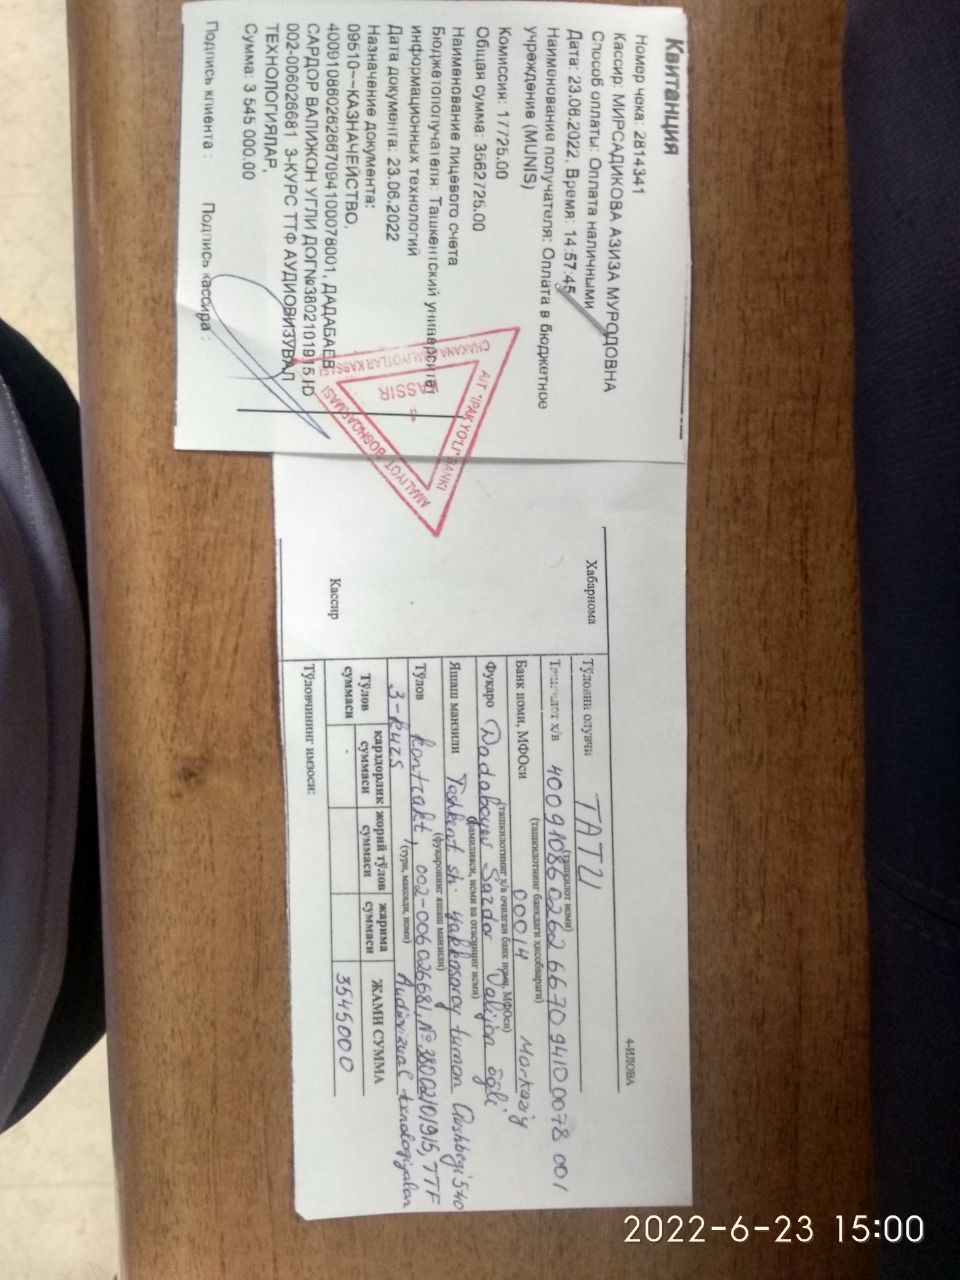 Квитанция
Номер чека: 2814341
Кассир: МИРСАДИКОВА АЗИЗА МУРОДОВНА
Способ оплаты: Оплата наличными
Дата: 23.06.2022, Время: 14:57:45
Наименование получателя: Оплата в бюджетное
учреждение (MUNIS)
Комиссия: 17725.00
Общая сумма: 3562725.00
Наименование лицевого счета
Бюджетополучателя: Ташкентский университет
информационных технологий
Дата документа: 23.06.2022
Назначение документа:
09510~~КАЗНАЧЕЙСТВО,
400910860262667094100078001, ДАДАБАЕВ
САРДОР ВАЛИЖОН УГЛИ ДОГ№3802101915 ID
002-006026681 3-КУРС ТТФ АУДИОВИЗУВАЛ
ТЕХНОЛОГИЯЛАР,
Сумма: 3 545 000.00
Подпись клиента : Подпись кассира :
AIT "IPAK YO'LI" BANKI
AMALIYOT BOSHQARMASI
CHAKANA AMALIYOTLAR KASSASI
KASSIR
4-ИЛОВА
Хабарнома
Кассир
Тўловни олувчи ТАТU
(ташкилот номи)
Ташкилот х/в 400910860262667094100078001
(ташкилотнинг банкдаги ҳисобварағи)
Банк номи, МФОси 00014 Markaziy
(ташкилотнинг х/в очилган банк номи, МФОси)
Фуқаро Dadaboyev Sardor Valijon ogli
(фамилияси, исми ва отасининг исми)
Яшаш манзили Toshkent sh. Yakkosaroy tuman Qushbegi 540
(фуқаронинг яшаш манзили)
Тўлов kontrakt, 002-006026681, № 3802101915, TTF
(тури, мақсади, номи)
3-kurs Audiovizual texnologiyalar
Тўлов суммаси
карздорлик суммаси
жорий тўлов суммаси
жарима суммаси
ЖАМИ СУММА
3545000
Тўловчининг имзоси:
2022-6-23 15:00